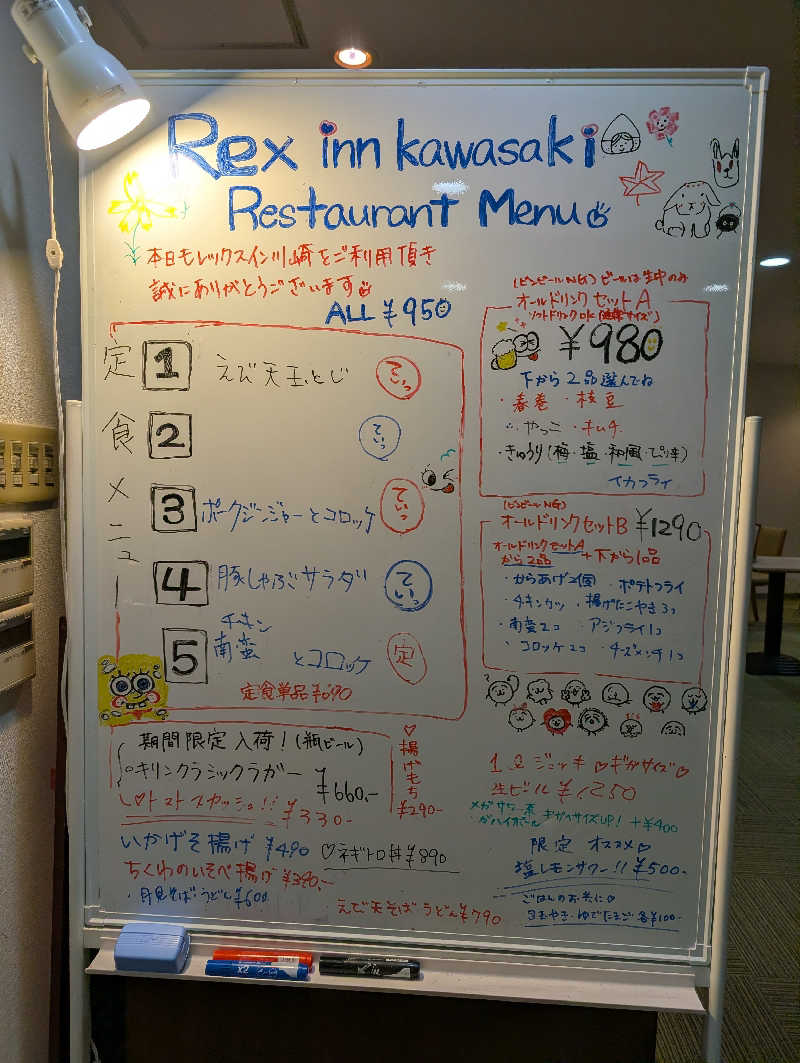 Rex inn kawasaki
Restaurant Menu
本日もレックスイン川崎をご利用頂き
誠にありがとうございます
ALL ¥950
定食メニュー
1 えび天玉とじ ていっ
2 ていっ
3 ポークジンジャーとコロッケ ていっ
4 豚しゃぶサラダ ていっ
5 チキン南蛮とコロッケ 定
定食単品¥690
(ビンビールNG) ビールは生中のみ
オールドリンクセットA
ソフトドリンクOK
¥980
下から2品選んでね
・春巻 ・枝豆
・やっこ ・キムチ
・きゅうり(梅・塩・和風・ピリ辛)
イカフライ
(ビンビールNG)
オールドリンクセットB ¥1290
オールドリンクセットAから2品 + 下から1品
・からあげ2個 ・ポテトフライ
・チキンカツ ・揚げたこやき3コ
・南蛮2コ ・アジフライ1コ
・コロッケ2コ ・チーズメンチ1コ
期間限定入荷!(瓶ビール)
キリンクラシックラガー
¥660.-
トマトスカッシュ!! ¥330-
♡揚げもち
¥290-
いかげそ揚げ ¥490
♡ネギトロ丼¥890
ちくわのいそべ揚げ ¥390.-
・月見そば・うどん¥600
えび天そば・うどん¥790
1ℓジョッキ♡ギガサイズ♡
生ビール ¥1250
メガサワー系
がハイボール ギガサイズUP! +¥400
限定 オススメ♡
塩レモンサワー!! ¥500-
ごはんのお共に♡
玉子やき・ゆでたまご 各¥100-